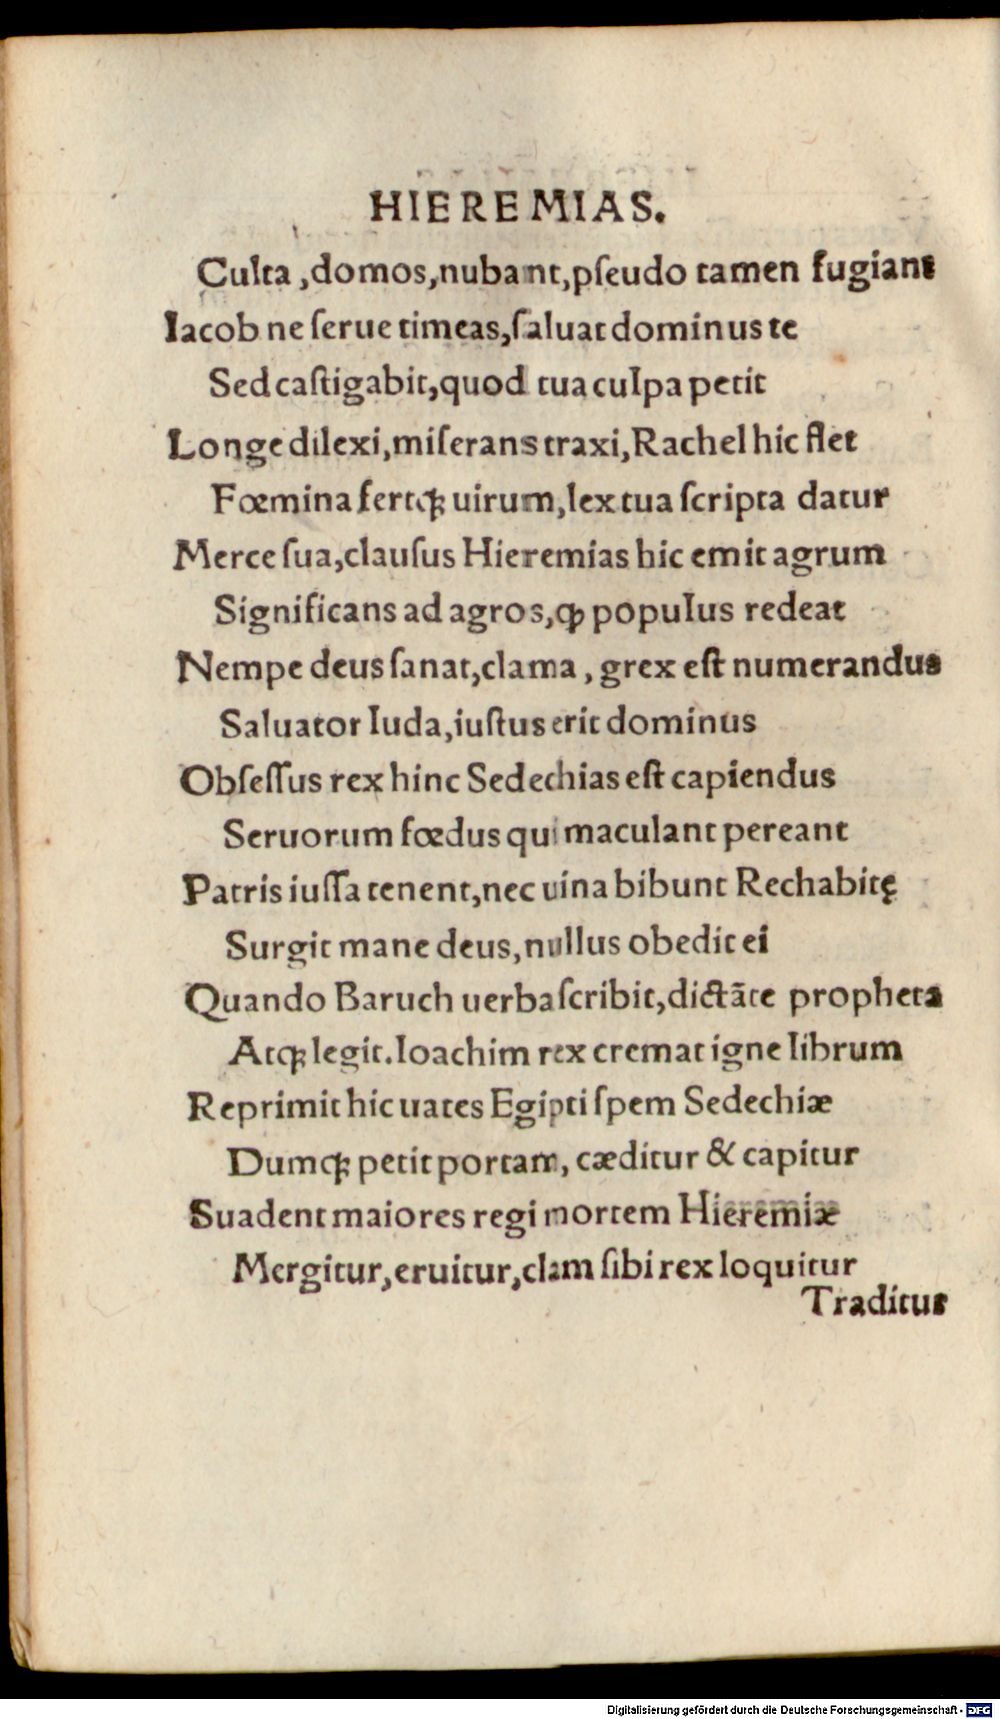 HIEREMIAS.
Culta ,domos,nubant,pſeudo tamen fugiant
Iacob ne ſerue timeas,ſaluat dominus te
Sed caſtigabit,quod tua culpa petit
Longe dilexi,miſerans traxi,Rachel hic flet
Fœmina fertqꝫ uirum,lex tua ſcripta datur
Merce ſua,clauſus Hieremias hic emit agrum
Significans ad agros,ꝙ populus redeat
Nempe deus ſanat,clama , grex eſt numerandus
Saluator Iuda,iuſtus erit dominus
Obſeſſus rex hinc Sedechias eſt capiendus
Seruorum fœdus qui maculant pereant
Patris iuſſa tenent,nec uina bibunt Rechabitę
Surgit mane deus,nullus obedit ei
Quando Baruch uerba ſcribit,dictãte propheta
Atqꝫ legit.Ioachim rex cremat igne librum
Reprimit hic uates Egipti ſpem Sedechiæ
Dumqꝫ petit portam, cæditur & capitur
Suadent maiores regi mortem Hieremiæ
Mergitur,eruitur,clam ſibi rex loquitur
Traditur
Digitalisierung gefördert durch die Deutsche Forschungsgemeinschaft - DFG